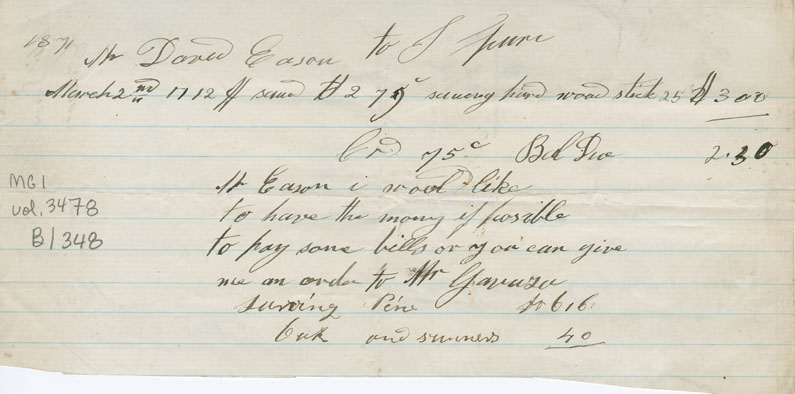 1871
Mr David Eason to J
March 2nd 1712 ft sawd $2 75c sawing hard wood stick 25 $3 00
Crd 75c Bal Due 2.30
Mr Eason i wood like
to have the mony if posible
to pay some bills or you can give
me an order to Mr
sawing Pine $6 16
Oak and 40
MG1
vol. 3478
B/348